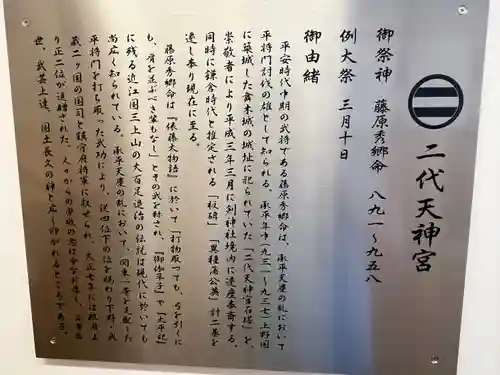 二代天神宮
御祭神　藤原秀郷命　八九一〜九五八
例大祭　三月十日
御由緒
平安時代中期の武将である藤原秀郷命は、承平天慶の乱において
平将門討伐の雄として知られる。承平年中(九三一〜九三七)上野国
に築城した舞木城の城址に祀られていた「二代天神宮石塔」を、
崇敬者により平成三年三月に剣神社境内に遷座奉斎する。
同時に鎌倉時代と推定される「板碑」「異種蒲公英」計二基を
遷し奉り現在に至る。
藤原秀郷命は『俵藤太物語』に於いて「打物取っても、弓を引くに
も、肩を並ぶべき輩もなし」とその武を称され、『御伽草子』や『太平記』
に残る近江国三上山の大百足退治の伝説は現代に於いても
尚広く知られている。承平天慶の乱において、関東一帯を支配した
平将門を打ち取った武功により、従四位下の位を賜わり下野・武
蔵二ヶ国の国司と鎮守府将軍に叙せられ、大正七年には政府よ
り正二位が追贈された。人々からの尊敬の念は
世、武芸上達、国土長久の神と広く仰がれるところである。